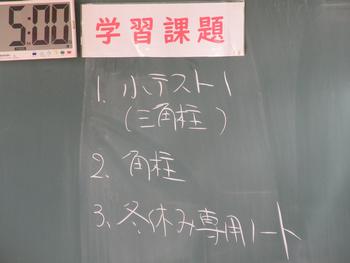 5:00
学習課題
1. 小テスト1
(三角柱)
2. 角柱
3. 冬休み専用ノート